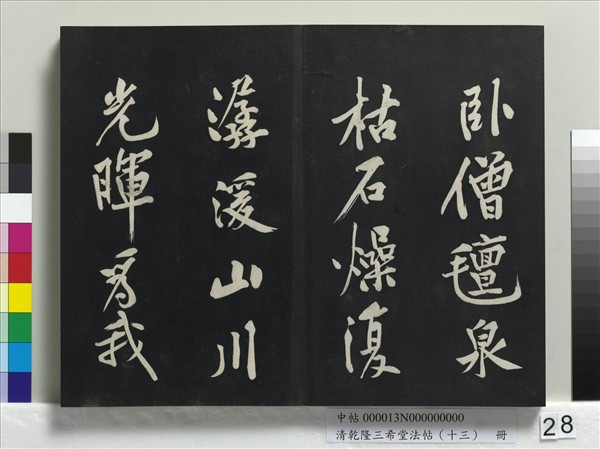 臥僧氈泉
枯石燥復
潺湲山川
光暉為我
中帖 000013N000000000
清乾隆三希堂法帖（十三） 冊
28